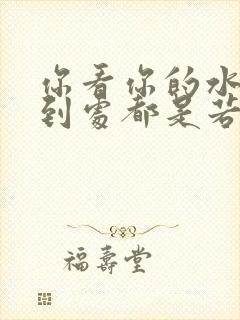 你看你的水
到處都是若
福壽堂